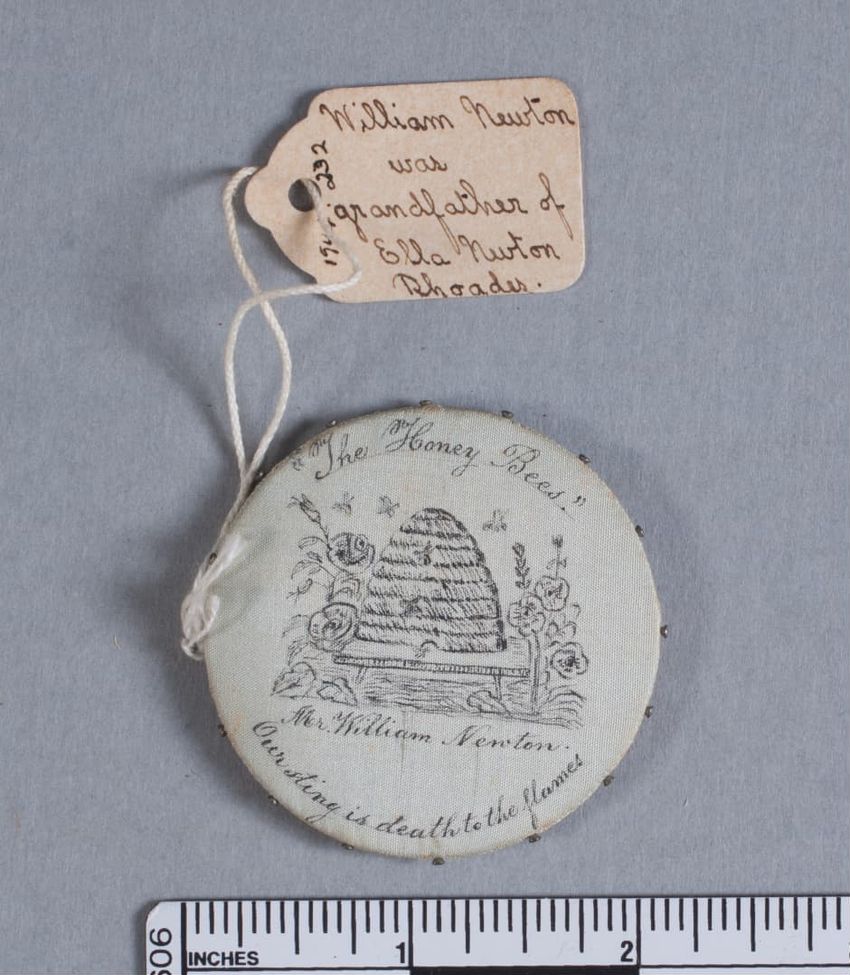 William Newton
was
grandfather of
Ella Newton
Rhoades.
232
"The Honey Bees."
Mr. William Newton.
Our sting is death to the flames
INCHES 1 2
606